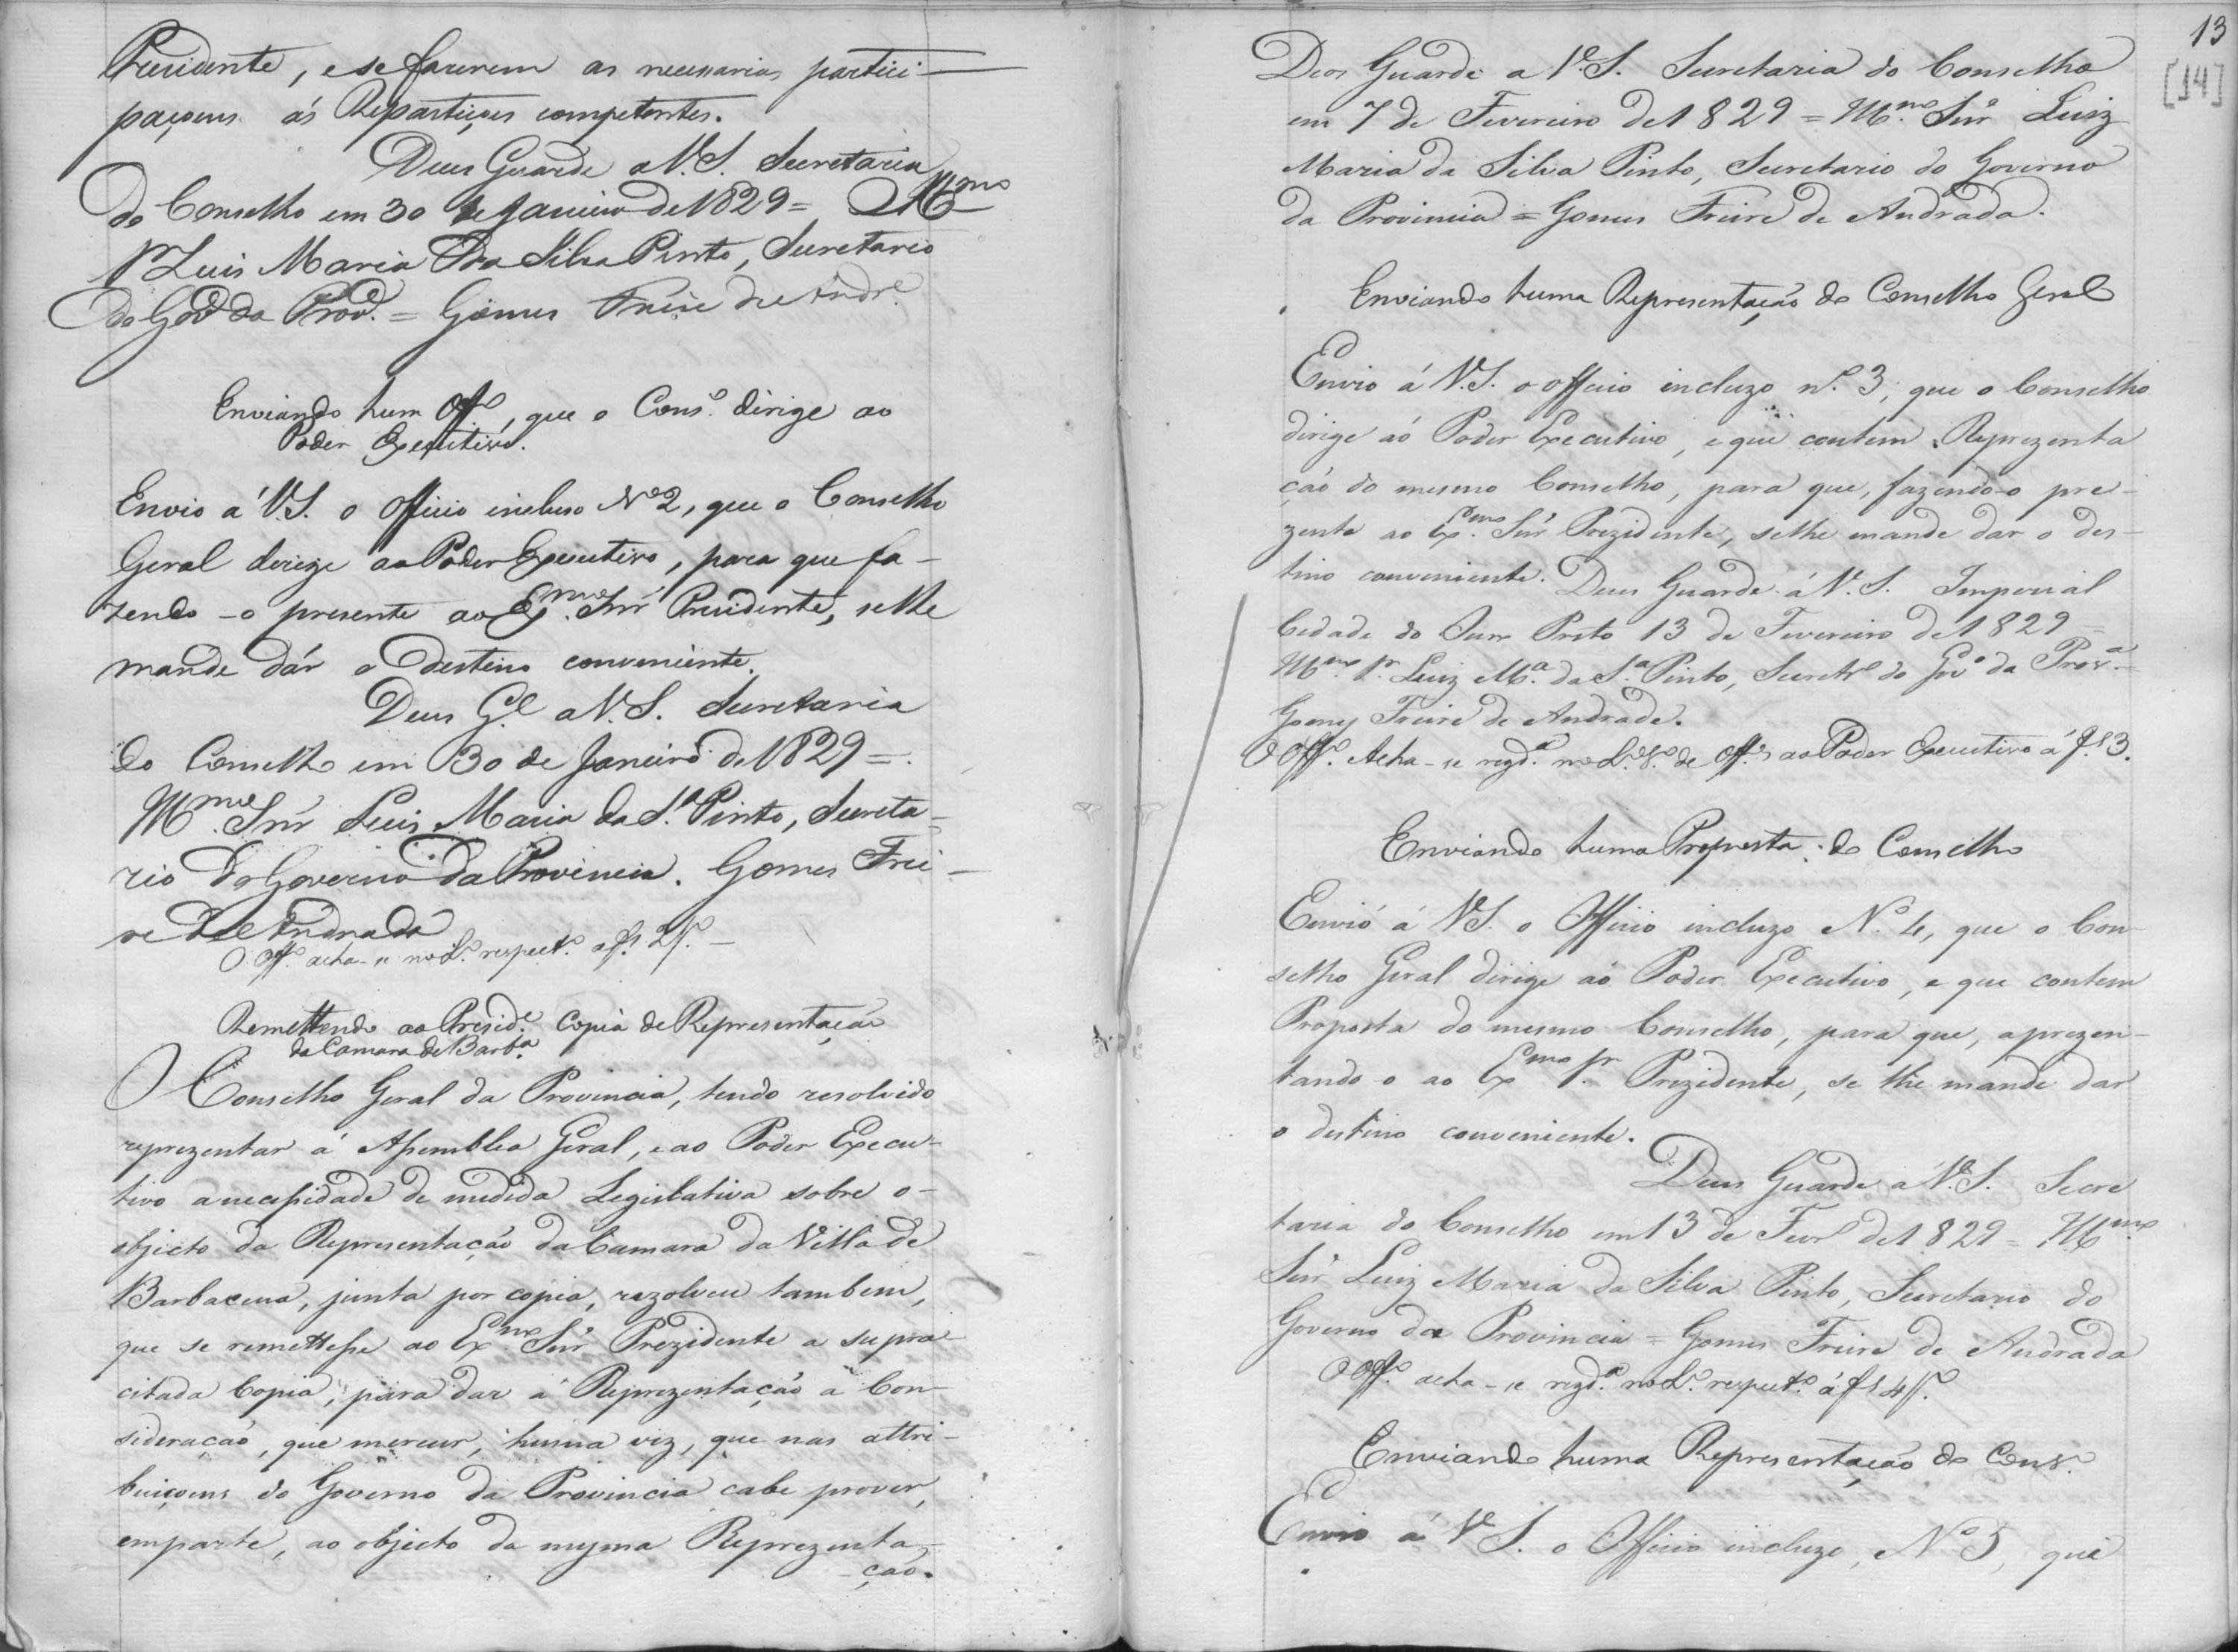 Presidente, e se fazerem as necessarias partici-
paçoens ás Repartiçoes competentes.
Deus Guarde a V.S. Secretaria
do Conselho em 30 de Janeiro de 1829 = Illmo
Sr Luis Maria da Silva Pinto, Secretario
do Govo da Prova. = Gomes Freire de Andre.
Enviando hum Offo, que o Conso. dirige ao
Poder Executivo.
Envio á V.S. o Officio incluso No 2, que o Conselho
Geral dirige ao Poder Executivo, para que fa-
zendo-o presente ao Exmo. Snr Presidente, se lhe
mande dár o destino conveniente.
Deus Ge a V.S. Secretaria
do Conselho em 30 de Janeiro de 1829 =
Illmo. Snr Luis Maria da Sa. Pinto, Secreta-
rio do Governo da Provincia. Gomes Frei-
re de Andrada
O Offo. acha-se no Lo. respecto. a fs 2
Remettendo ao Preside. copia de Representação
da Camara de Barba.
O Conselho Geral da Provincia, tendo resolvido
reprezentar á Assemblea Geral, e ao Poder Execu-
tivo a necessidade de medida Legislativa sobre o-
objecto da Representação da Camara da Villa de
Barbacena, junta por copia, rezolveu tambem,
que se remettesse ao Exmo Snr Prezidente a supra-
citada Copia, para dar á Reprezentação a Con-
sideração, que merecer, huma vez, que nas attri-
buiçoens do Governo da Provincia cabe prover,
emparte, ao objecto da mesma Reprezenta-
ção.
13
[14]
Deos Guarde a V.S. Secretaria do Conselho
em 7 de Fevereiro de 1829 = Illmo. Snr Luiz
Maria da Silva Pinto, Secretario do Governo
da Provincia = Gomes Freire de Andrada.
Enviando huma Representação do Conselho Geral
Envio á V.S. o officio incluzo no. 3, que o Conselho
dirige aó Poder Executivo, e que contem Reprezenta
ção do mesmo Conselho, para que, fazendo-o pre-
zente ao Exmo. Snr Prezidente, se lhe mande dar o des-
tino conveniente. Deus Guarde á V.S. Imperial
Cidade do Ouro Preto 13 de Fevereiro de 1829 =
Illmo. Sr. Luiz Ma. da Sa. Pinto, Secreto do Govo da Prova. =
Gomes Freire de Andrade.
O Offo. Acha-se regdo. no Lo. de Offos ao Poder Executivo á fs 3.
Enviando huma Proposta do Conselho
Envio á V.S. o Officio incluzo No. 4, que o Con-
selho Geral dirige ao Poder Executivo, e que contem
Proposta do mesmo Conselho, para que, aprezen-
tando o ao Exmo Sr. Prezidente, se lhe mande dar
o destino conveniente.
Deus Guarde á V.S. Secre
taria do Conselho em 13 de Fevro de 1829 = Illmo
Snr Luiz Maria da Silva Pinto, Secretario do
Governo da Provincia = Gomes Freire de Andrada
O Offo. acha-se regdo. no Lo. respecto. á fs 4
Enviando huma Representação do Conso.
Envio á V.S. o Officio incluzo, No 5, que